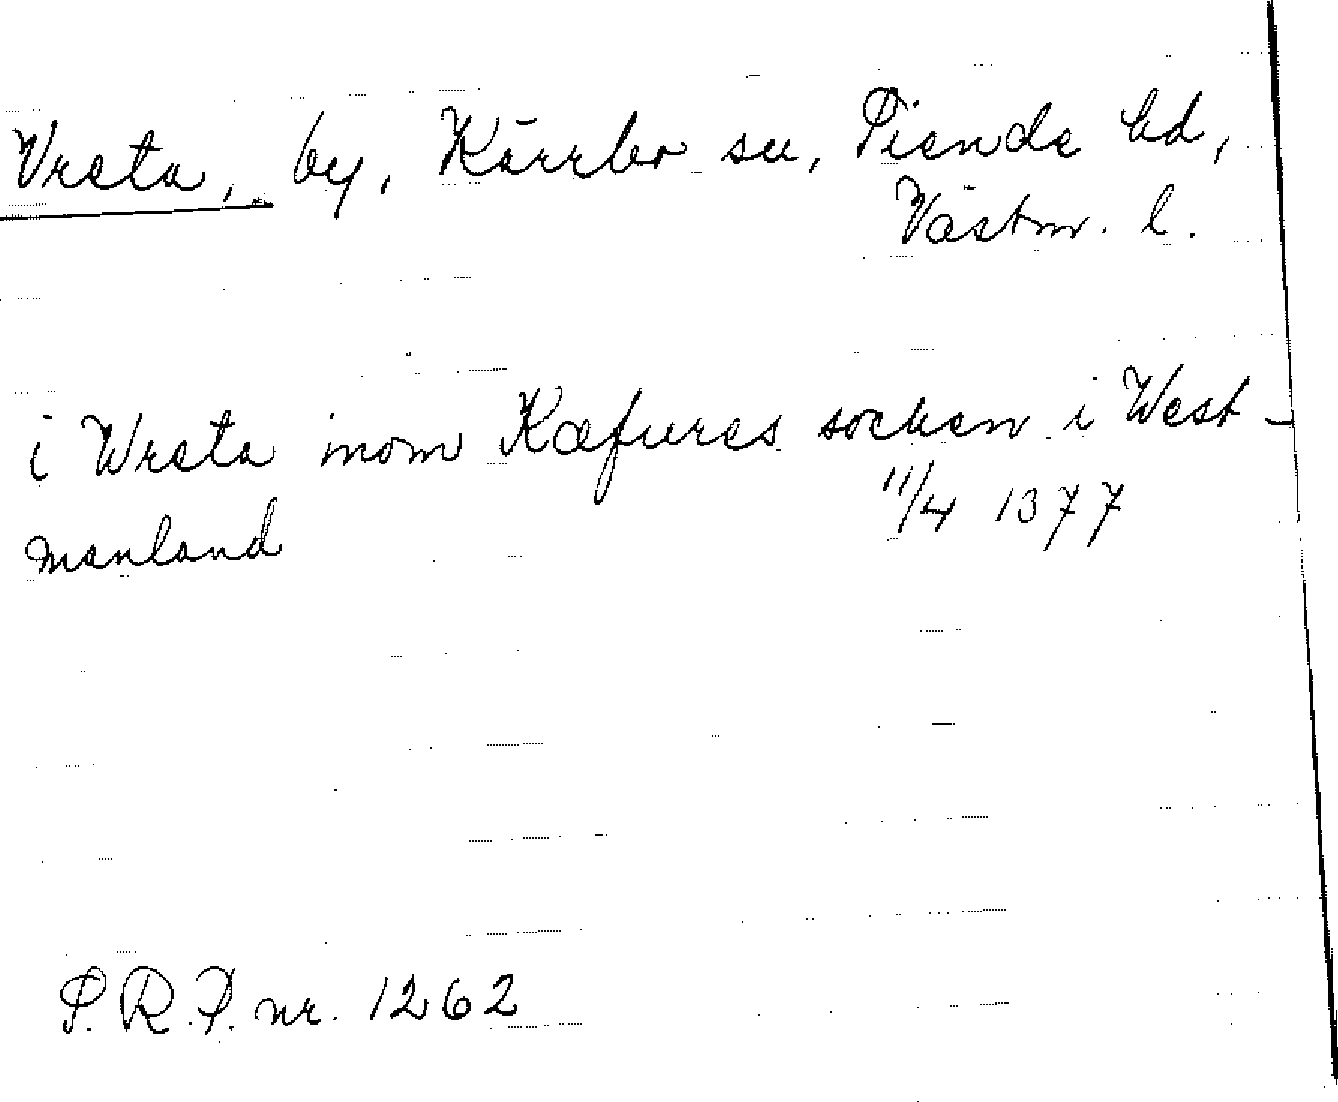 Vreta, by, Kärrbo sn, Siende hd,
Västm. l.
i Wreta inom Kæfueres socken i West-
manland 11/4 1377
S.R.P. nr. 1262